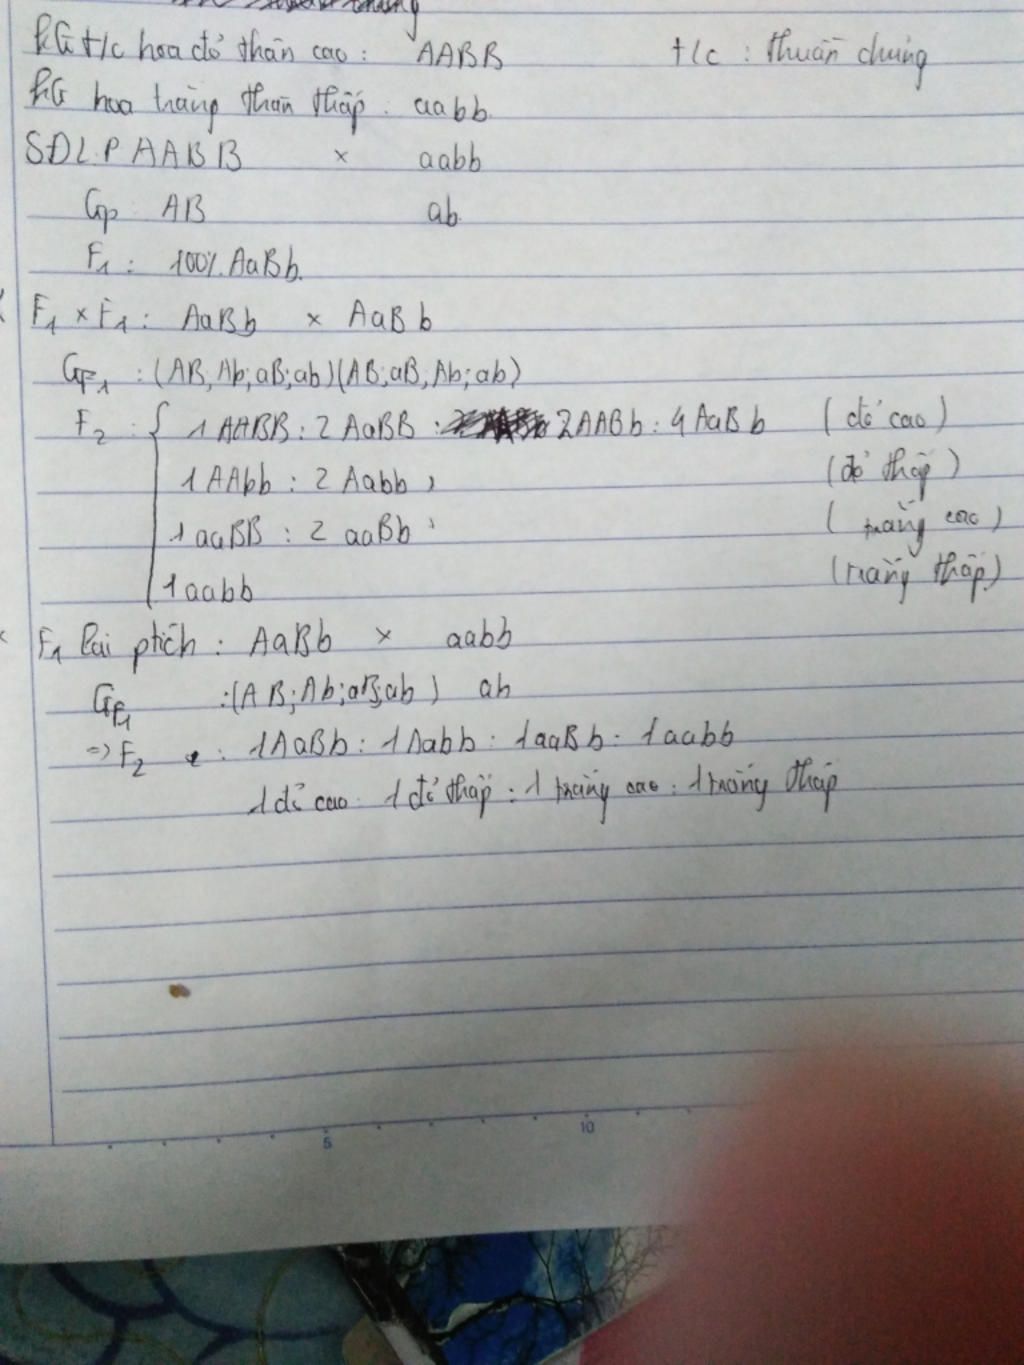 KG t/c hoa đỏ thân cao : AABB t/c : thuần chủng
KG hoa trắng thân thấp : aabb.
SĐL. P AABB × aabb
Gp AB ab.
F1 : 100% AaBb.
F1 × F1 : AaBb × AaBb
GF1 : (AB, Ab; aB; ab)(AB; aB, Ab; ab)
F2 : 1 AABB : 2 AaBB : 2AABb : 4 AaBb (đỏ cao)
1 AAbb : 2 Aabb (đỏ thấp)
1 aaBB : 2 aaBb (trắng cao)
1 aabb (trắng thấp)
F1 lai ptích : AaBb × aabb
GF1 : (AB; Ab; aB; ab) ab
=> F2 : 1AaBb : 1Aabb : 1aaBb : 1aabb
1 đỏ cao 1 đỏ thấp : 1 trắng cao : 1 trắng thấp
5 10